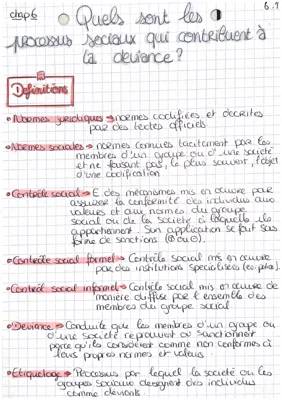 chap 6
6.1
Quels sont les
processus sociaux qui contribuent à
la déviance ?
Définitions
• Normes juridiques → normes codifiées et décrites
par des textes officiels
• Normes sociales → normes connues tacitement par les
membres d'un groupe ou d'une société
et ne faisant pas, le plus souvent, l'objet
d'une codification
• Contrôle social → E des mécanismes mis en œuvre pour
assurer la conformité des individus aux
valeurs et aux normes du groupe
social ou de la société à laquelle ils
appartiennent. Son application se fait sous
forme de sanctions (⊕ ou ⊖).
• Contrôle social formel → Contrôle social mis en œuvre
par des institutions spécialisées
• Contrôl social informel → Contrôle social mis en œuvre de
manière diffuse par l'ensemble des
membres du groupe social
• Déviance → Conduite que les membres d'un groupe ou
d'une société réprouvent ou sanctionnent
parce qu'ils considèrent comme non conformes à
leurs propres normes et valeurs
• Étiquetage → Processus par lequel la société ou les
groupes sociaux désignent des individus
comme déviants.